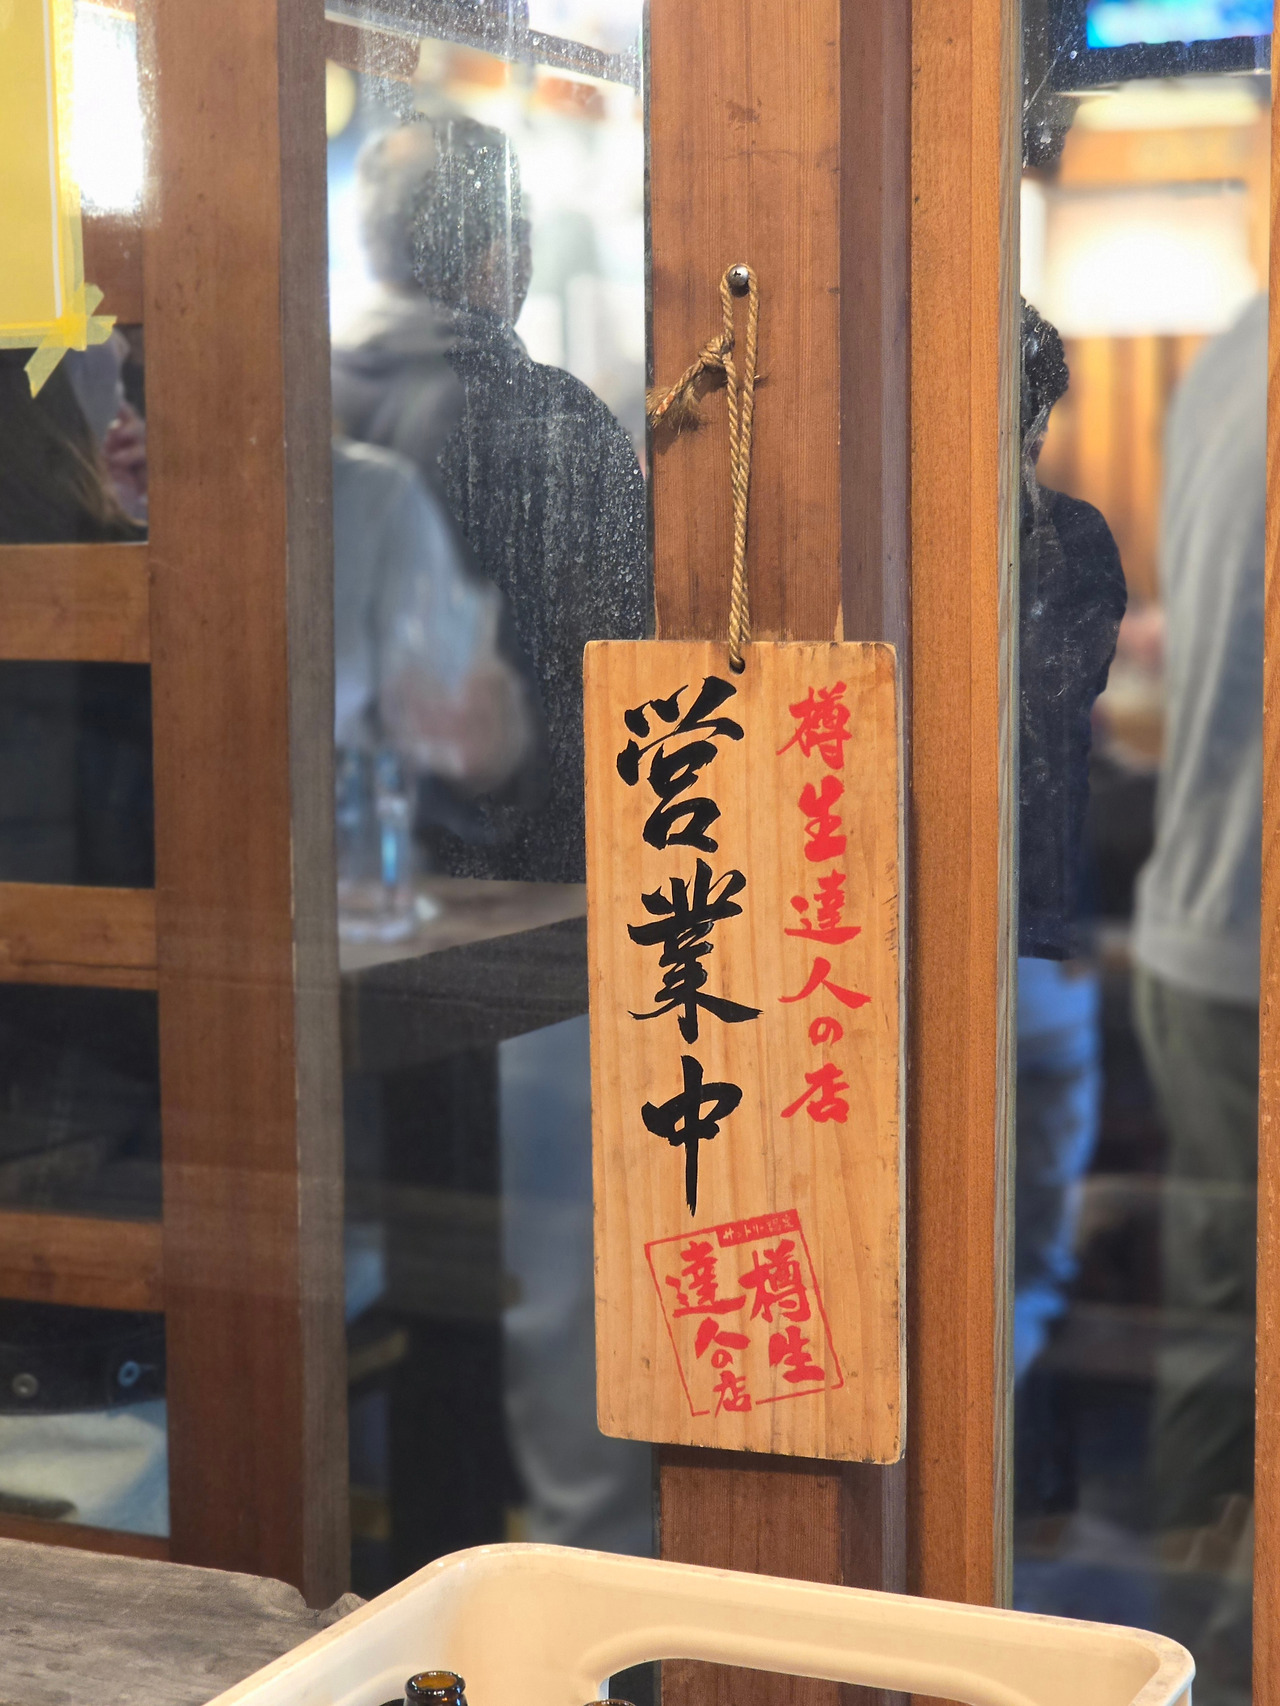 樽生達人の店
営業中
サントリー認定
樽生
達人の店